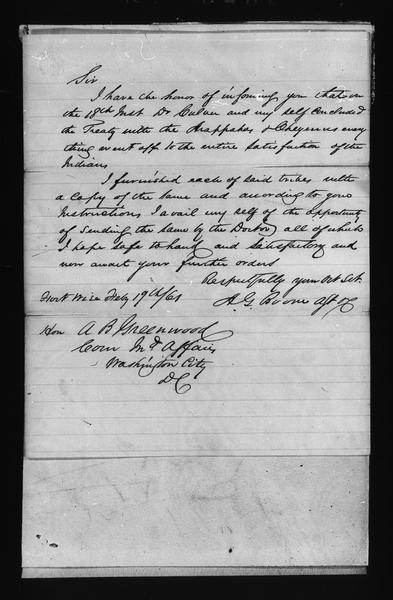 Sir
I have the honor of infoming you that on
the 18th Inst Dr Culver and my self Concluded
the Treaty with the Arappahes & Cheyennes every
thing went off to the entire Satisfaction of the
Indians
I furnished each of said tribes with
a Copy of the same and according to your
Instructions I avail my self of the oppertunity
of Sending the same by the Doctor, all of which
I hope safe to hand and Satisfactory and
now await your further orders
Respectfully your Obt Svt.
A. G. Boone
Fort Wise Feby 19th/61
Hon A B Greenwood
Com Ind Affairs
Washington City
DC